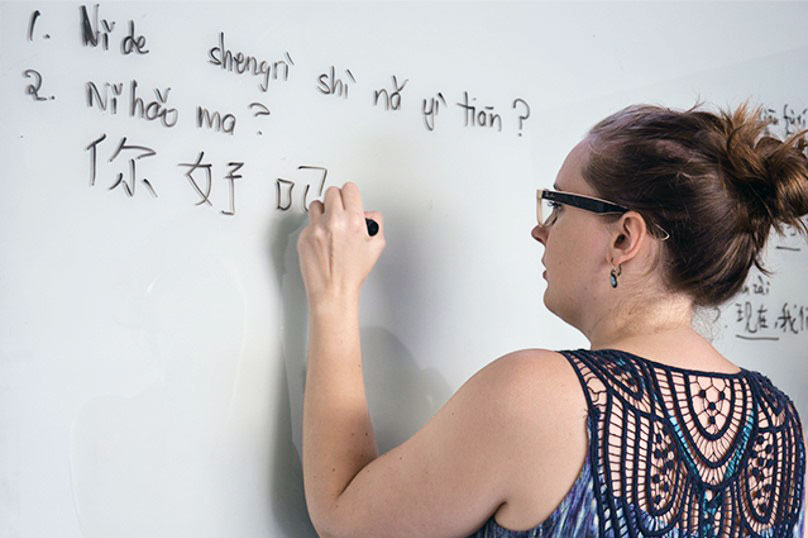 1. Nǐ de shengrì shì nǎ yì tiān?
2. Nǐ hǎo ma?
你 好
zài
现在,我们